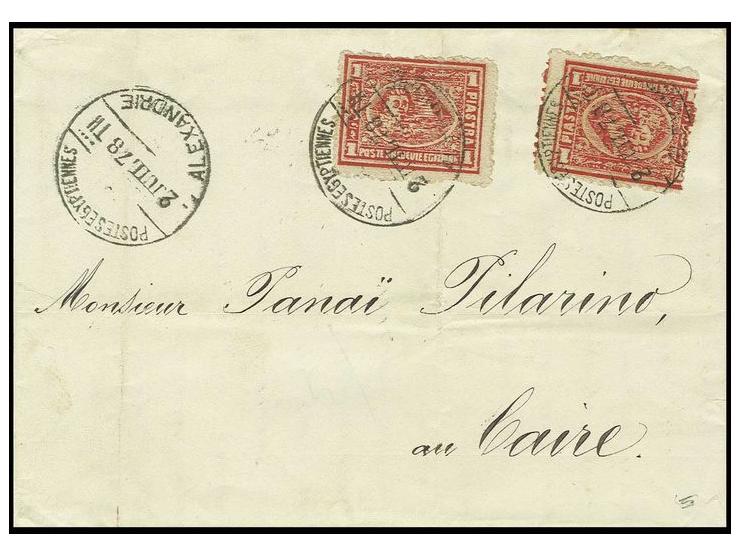 POSTES EGYPTIENNES
ALEXANDRIE
2 JUIL 78 TII
1 PIASTRA 1
POSTE KHEDEUIE EGIZIANE
POSTES EGYPTIENNES
1 PIASTRA 1
POSTE KHEDEUIE EGIZIANE
POSTES EGYPTIENNES
Monsieur Panaï Pilarino,
au Caire.